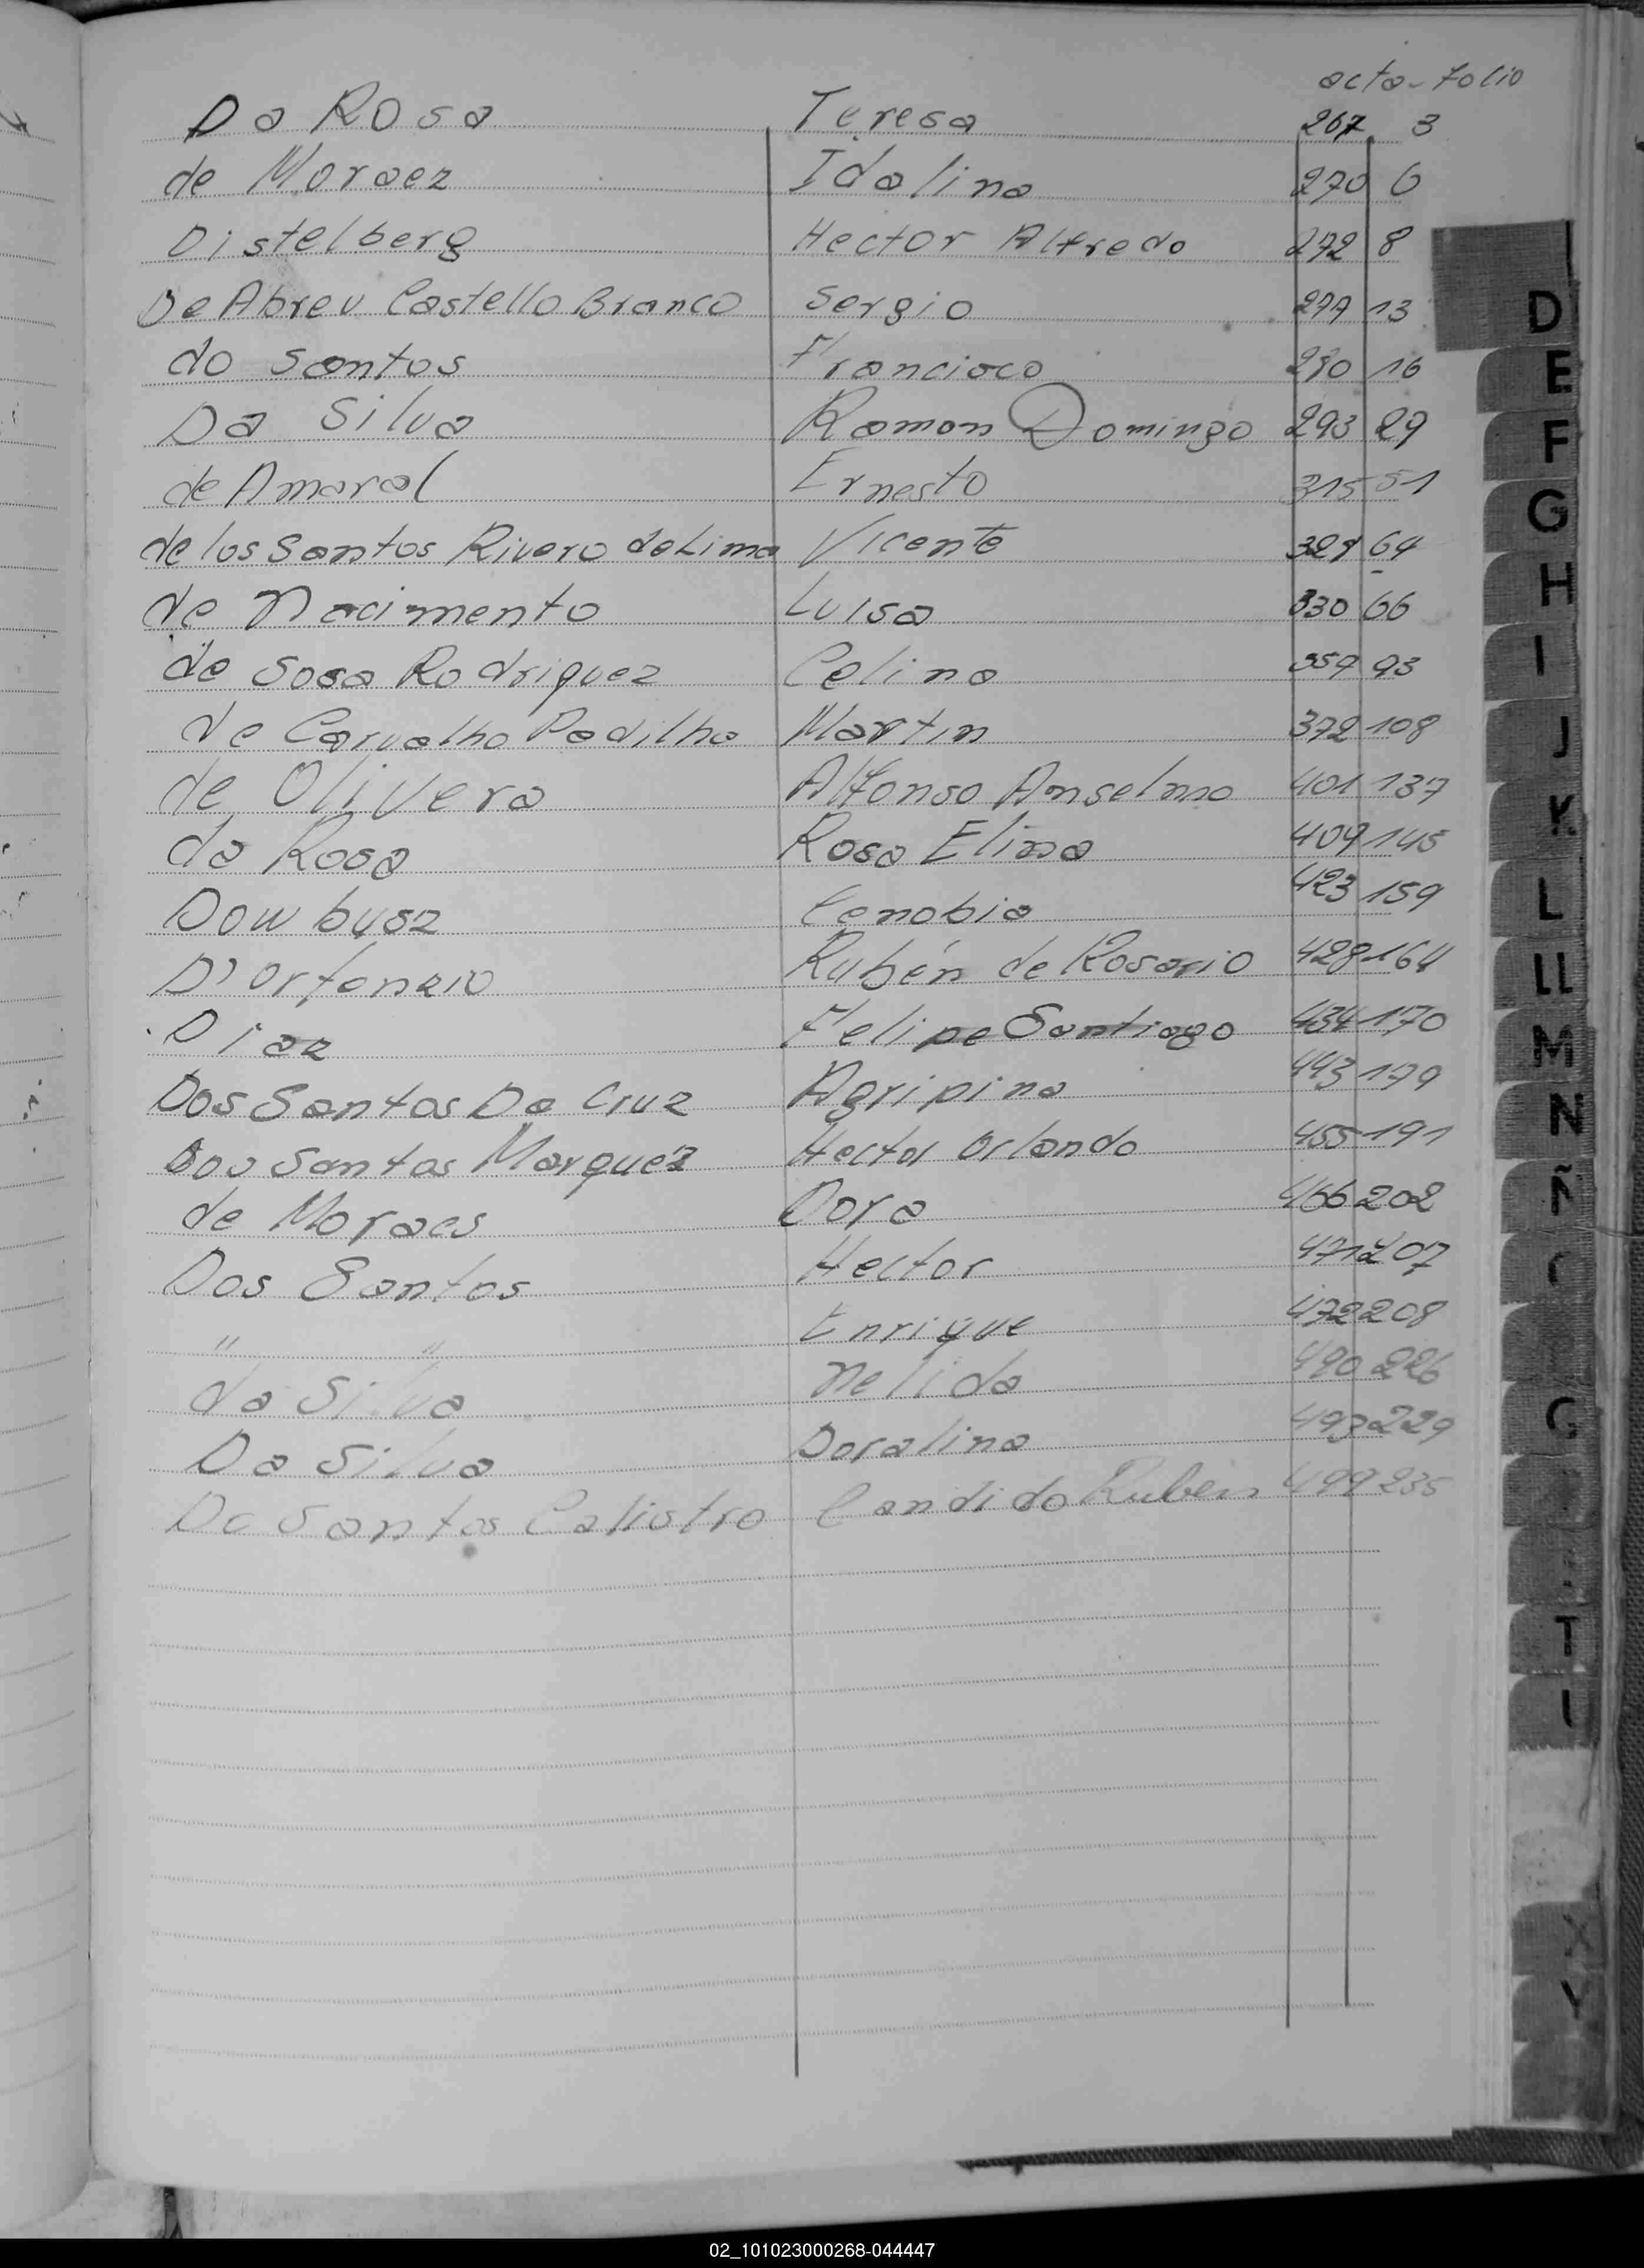 acta - folio
Da Rosa Teresa 267 3
de Moraez Idalina 270 6
Distelberg Hector Alfredo 272 8
De Abreu Castello Branco Sergio 277 13
do Santos Francisco 280 16
Da Silva Ramon Domingo 293 29
de Amaral Ernesto 315 51
de los Santos Rivero de Lima Vicente 328 64
de Nacimento Luisa 330 66
de Sosa Rodriguez Celina 357 93
de Carvalho Padilha Martin 372 108
de Olivera Alfonso Anselmo 401 137
da Rosa Rosa Elina 409 145
Dowbusz Cenobia 423 159
D'Ortenzio Rubén de Rosario 428 164
Diaz Felipe Santiago 434 170
Dos Santos Da Cruz Agripina 443 179
Dos Santos Marquez Hector Orlando 455 191
de Moraes Dora 466 202
Dos Santos Hector 471 207
" " Enrique 472 208
da Silva Nelida 490 226
Da Silva Doralina 493 229
Do Santos Calistro Candido Ruben 499 235
D
E
F
G
H
I
J
K
L
LL
M
N
Ñ
T
X
Y
02_101023000268-044447